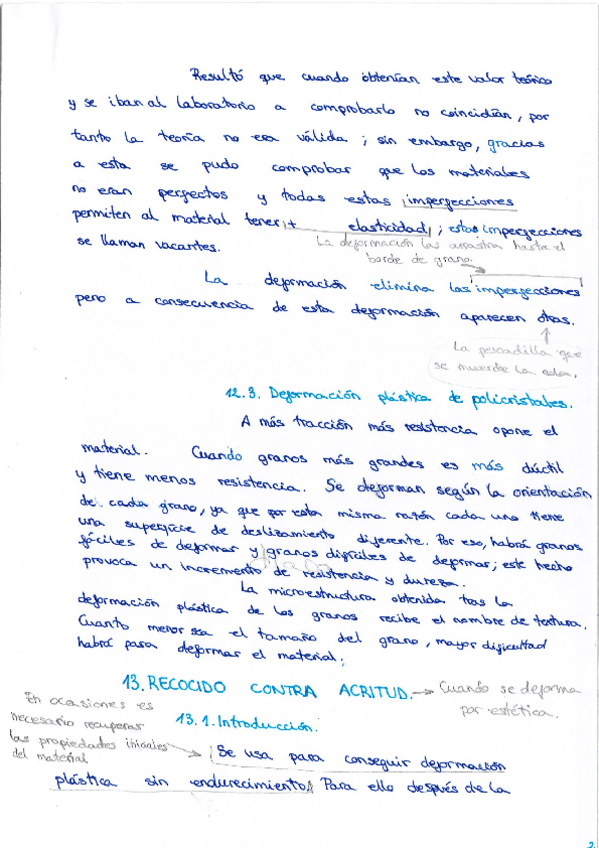 Resultó que cuando obtenían este valor teórico
y se iban al laboratorio a comprobarlo no coincidían, por
tanto la teoría no era válida; sin embargo, gracias
a esta se pudo comprobar que los materiales
no eran perfectos y todas estas imperfecciones
permiten al material tener + elasticidad; estas imperfecciones
se llaman vacantes.
La deformación las arrastra hasta el
borde de grano.
La deformación elimina las imperfecciones
pero a consecuencia de esta deformación aparecen otras.
La pescadilla que
se muerde la cola.
12.3. Deformación plástica de policristales.
A más tracción más resistencia opone el
material. Cuando granos más grandes es más dúctil
y tiene menos resistencia. Se deforman según la orientación
de cada grano, ya que por esta misma razón cada uno tiene
una superficie de deslizamiento diferente. Por eso, habrá granos
fáciles de deformar y granos difíciles de deformar; este hecho
provoca un incremento de resistencia y dureza.
La microestructura obtenida tras la
deformación plástica de los granos recibe el nombre de textura.
Cuanto menor sea el tamaño del grano, mayor dificultad
habrá para deformar el material.
13. RECOCIDO CONTRA ACRITUD. → Cuando se deforma
por estética.
En ocasiones es
necesario recuperar
las propiedades iniciales
del material
13.1. Introducción.
Se usa para conseguir deformación
plástica sin endurecimiento. Para ello después de la
2